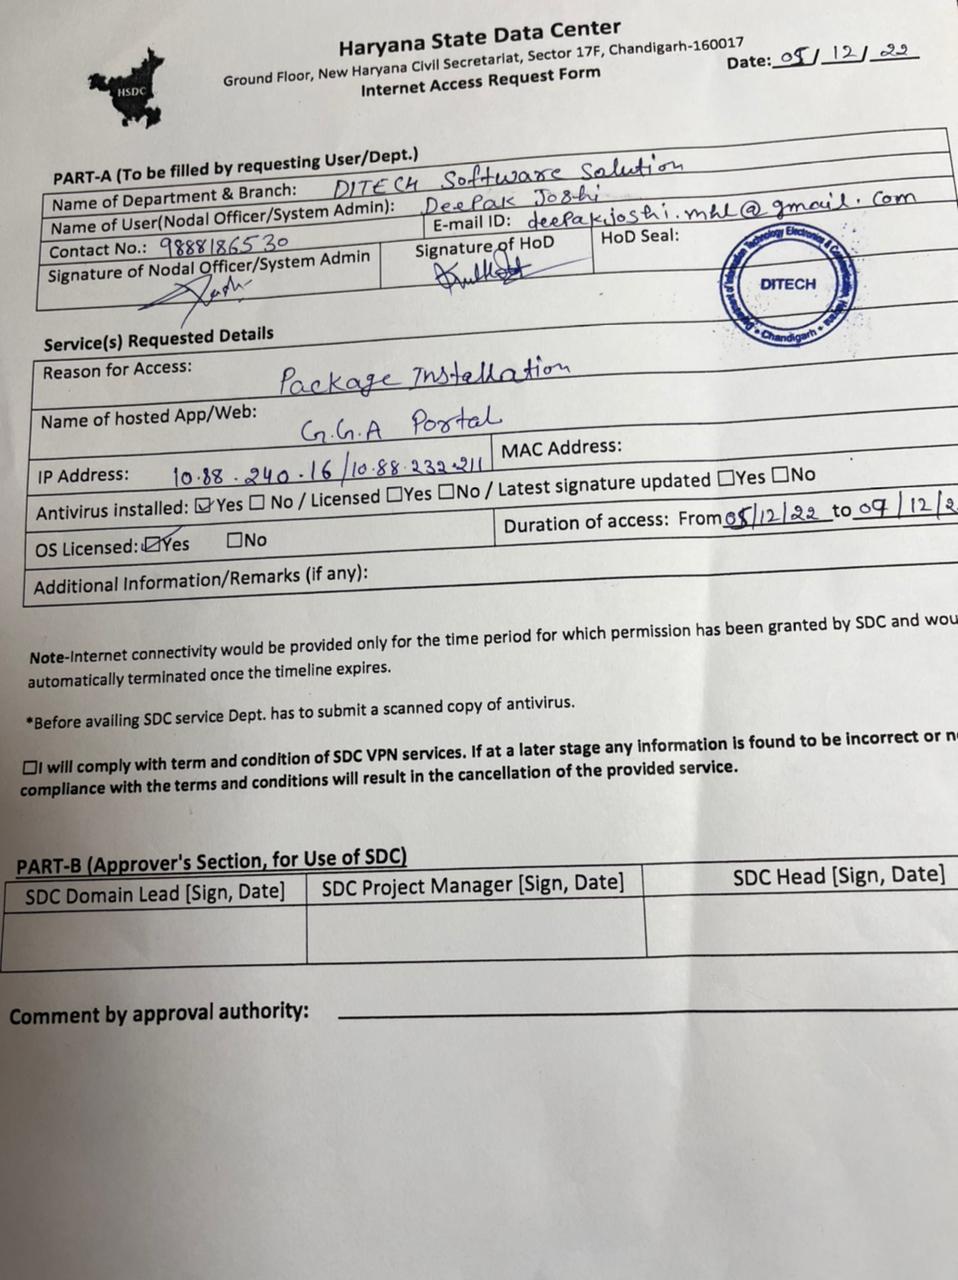 Haryana State Data Center
Ground Floor, New Haryana Civil Secretariat, Sector 17F, Chandigarh-160017
Internet Access Request Form
Date: 05/12/22
HSDC
PART-A (To be filled by requesting User/Dept.)
Name of Department & Branch: DITECH Software Solution
Name of User(Nodal Officer/System Admin): Deepak Joshi
Contact No.: 9888186530 E-mail ID: deepakjoshi.mhl@gmail.com
Signature of Nodal Officer/System Admin Signature of HoD HoD Seal:
Department of Information Technology Electronics & Communication, Haryana
DITECH
Chandigarh
Service(s) Requested Details
Reason for Access: Package Installation
Name of hosted App/Web: G.G.A Portal
IP Address: 10.88.240.16/10.88.232.211 MAC Address:
Antivirus installed: ☑Yes ☐ No / Licensed ☐Yes ☐No / Latest signature updated ☐Yes ☐No
OS Licensed: ☑Yes ☐No Duration of access: From 05/12/22 to 09/12/2
Additional Information/Remarks (if any):
Note-Internet connectivity would be provided only for the time period for which permission has been granted by SDC and wou
automatically terminated once the timeline expires.
*Before availing SDC service Dept. has to submit a scanned copy of antivirus.
☐I will comply with term and condition of SDC VPN services. If at a later stage any information is found to be incorrect or n
compliance with the terms and conditions will result in the cancellation of the provided service.
PART-B (Approver's Section, for Use of SDC)
SDC Domain Lead [Sign, Date] SDC Project Manager [Sign, Date] SDC Head [Sign, Date]
Comment by approval authority: